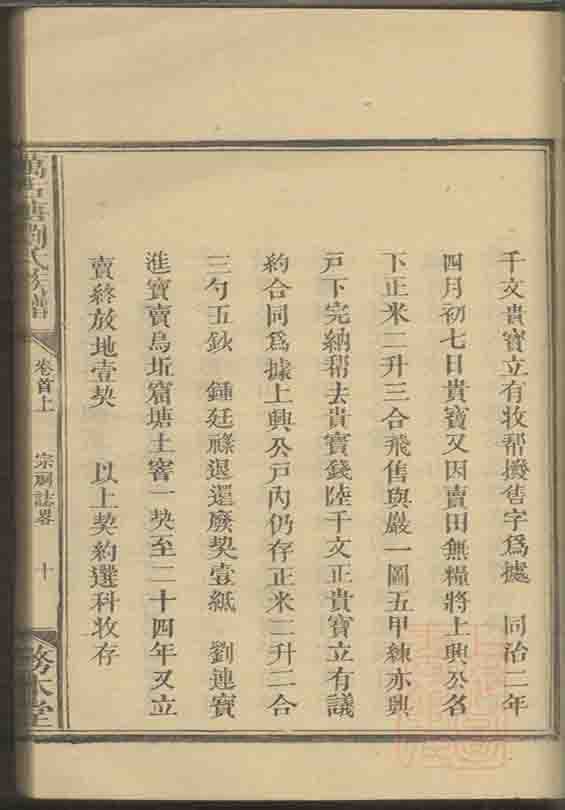 千文貴寳立有收帮撥售字爲據　同治二年
四月初七日貴寳又因賣田無糧將上興公名
下正米二升三合飛售與嚴一圖五甲練亦興
戸下完納帮去貴寳錢陸千文正貴寳立有議
約合同爲據上興公戸內仍存正米二升二合
三勺五鈔　鍾廷祿退還廢契壹紙　劉連寳
進寳賣烏坵窟塘土窨一契至二十四年又立
賣終放地壹契　以上契約選科收存
劉氏族譜
卷首上
宗祠誌畧
十
務本堂